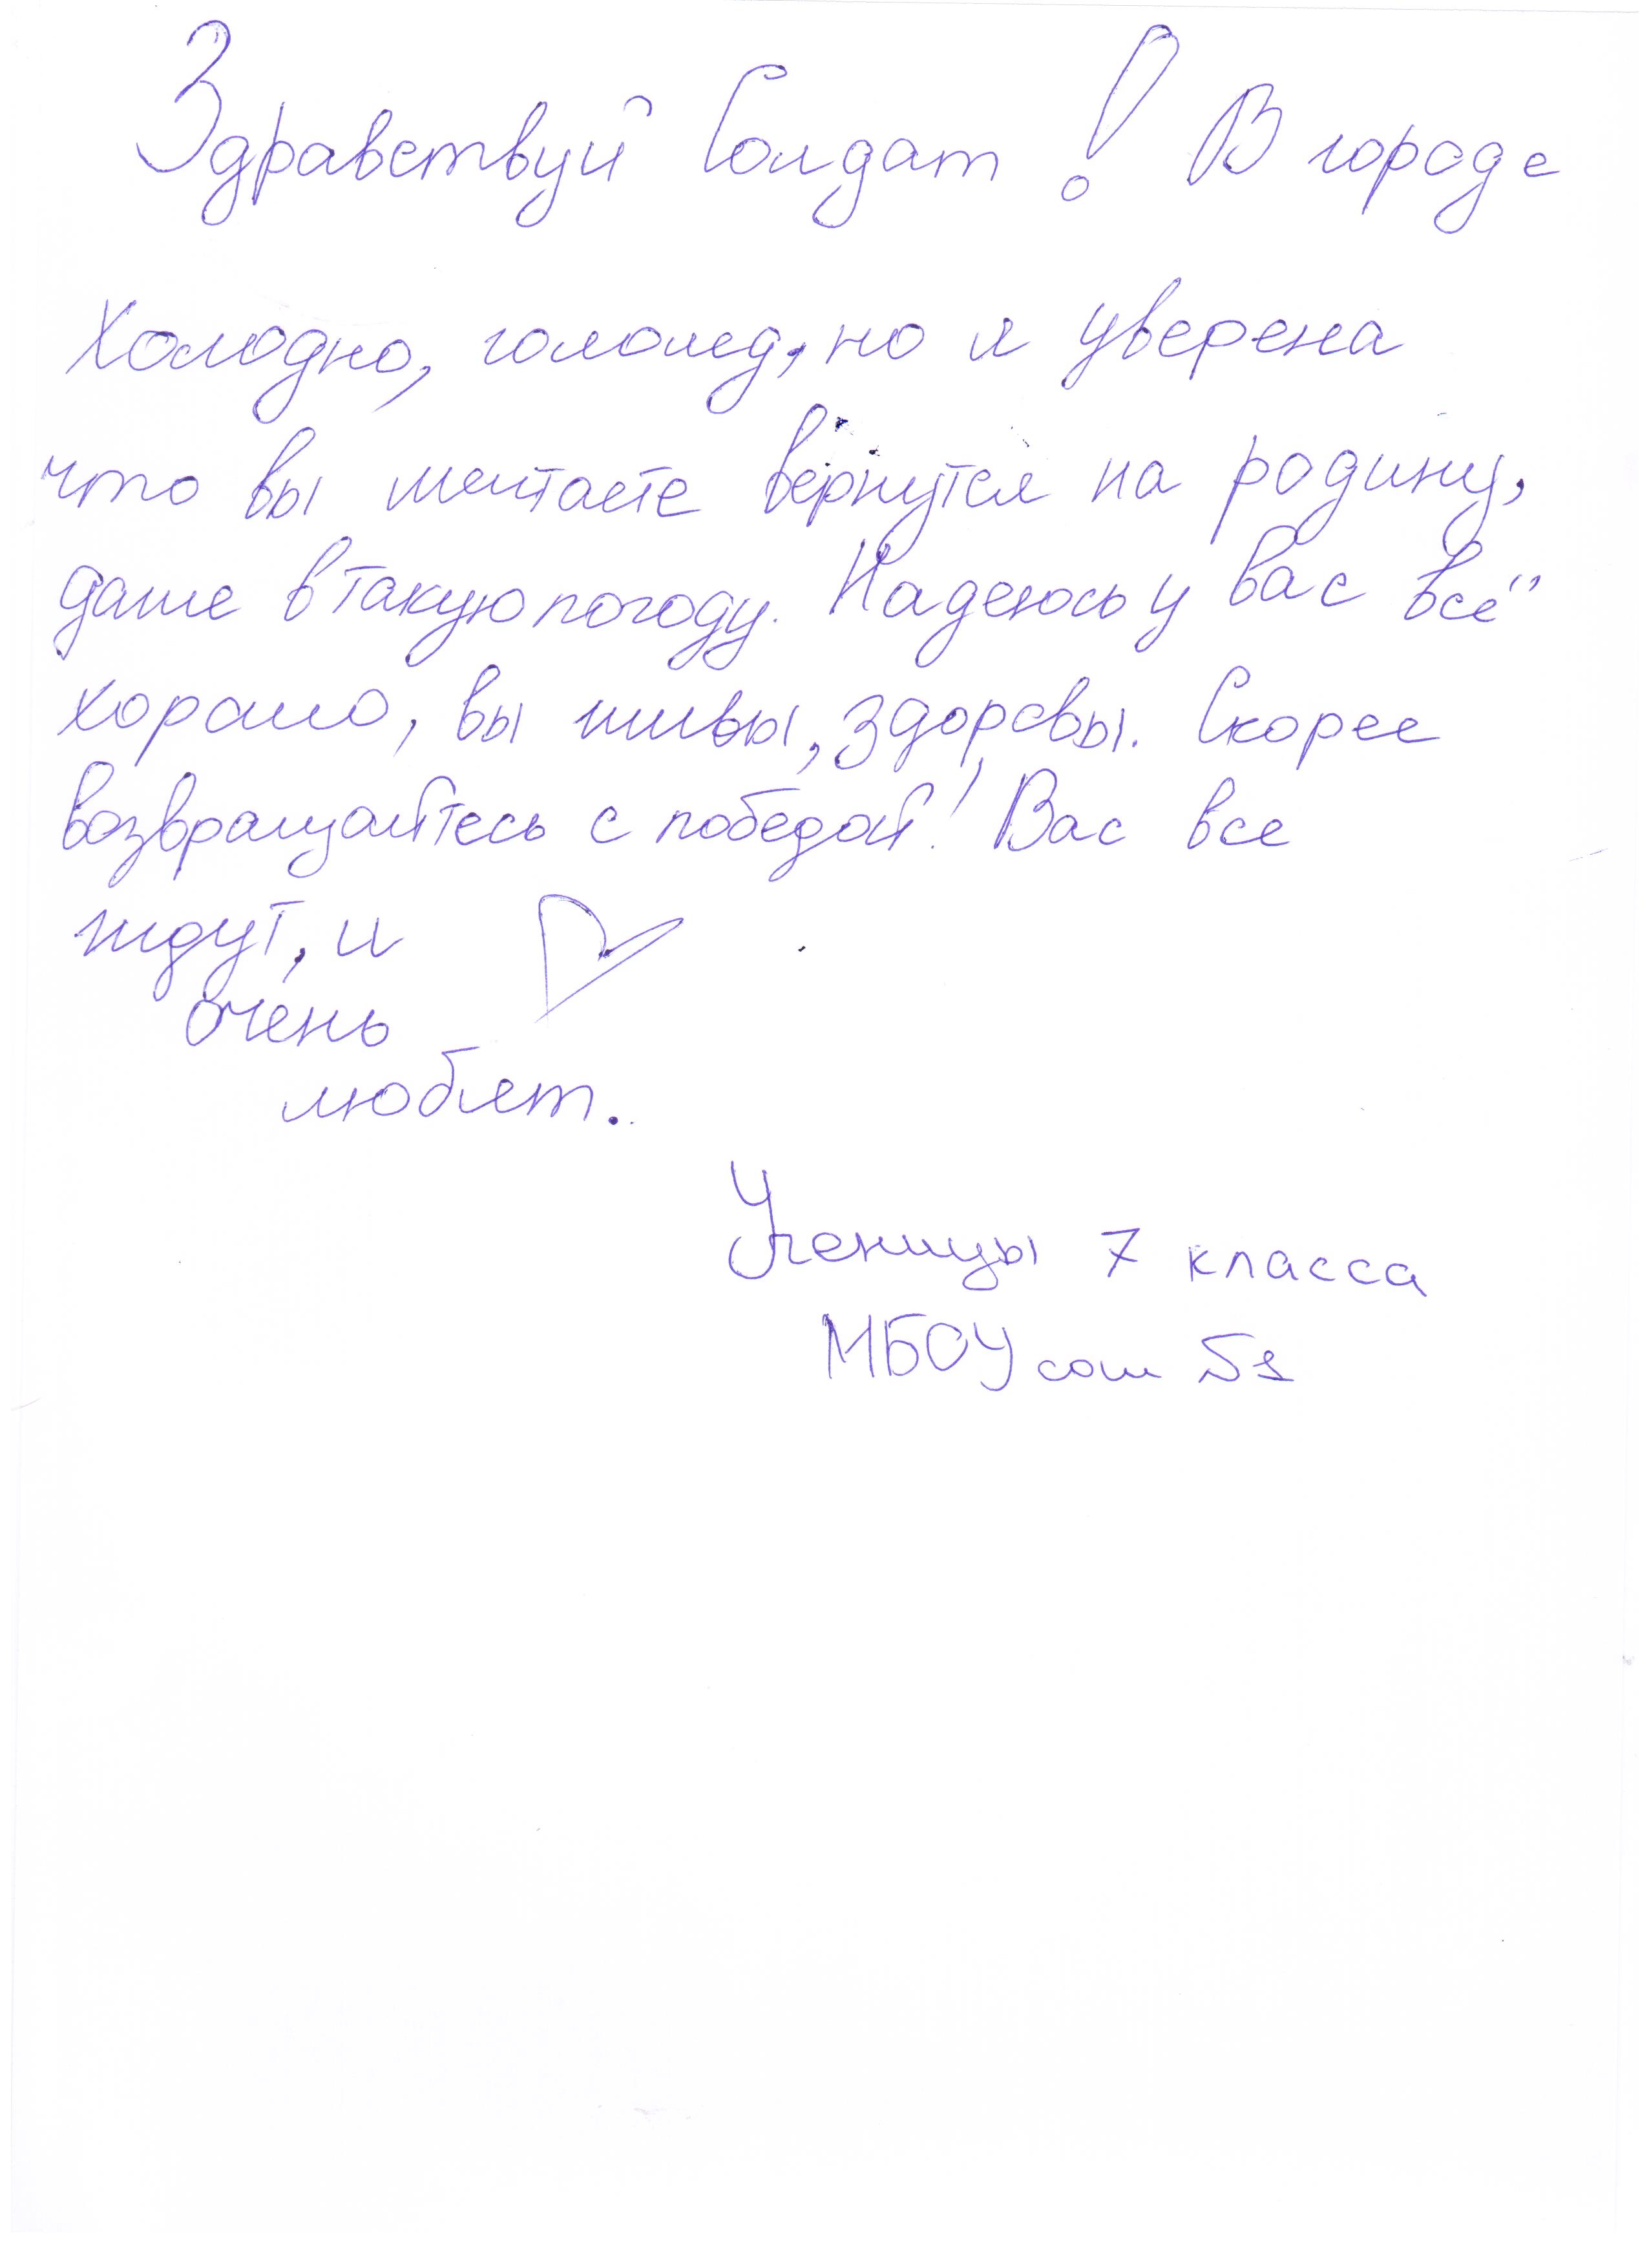 Здравствуй Солдат! В городе
холодно, гололед, но я уверена
что вы мечтаете вернутся на родину,
даже в такую погоду. Надеюсь у вас всё
хорошо, вы живы, здоровы. Скорее
возвращайтесь с победой! Вас все
ждут, и
очень
любят.
Ученицы 7 класса
МБОУ сош №1